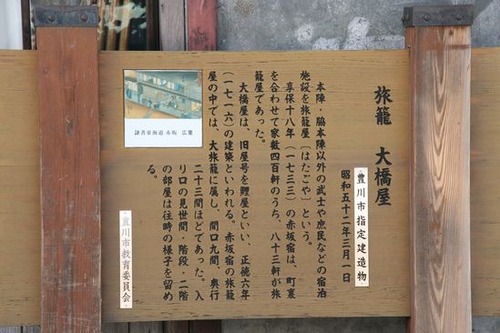 旅籠 大橋屋
豊川市指定建造物
昭和五十二年三月一日
本陣・脇本陣以外の武士や庶民などの宿泊
施設を旅籠屋（はたごや）という。
享保十八年（一七三三）の赤坂宿は、町裏
を合わせて家数四百軒のうち、八十三軒が旅
籠屋であった。
大橋屋は、旧屋号を鯉屋といい、正徳六年
（一七一六）の建築といわれる。赤坂宿の旅籠
屋の中では、大旅籠に属し、間口九間、奥行
二十三間ほどであった。入
り口の見世間、階段、二階
の部屋は往時の様子を留め
る。
隷書東海道 赤坂 広重
豊川市教育委員会